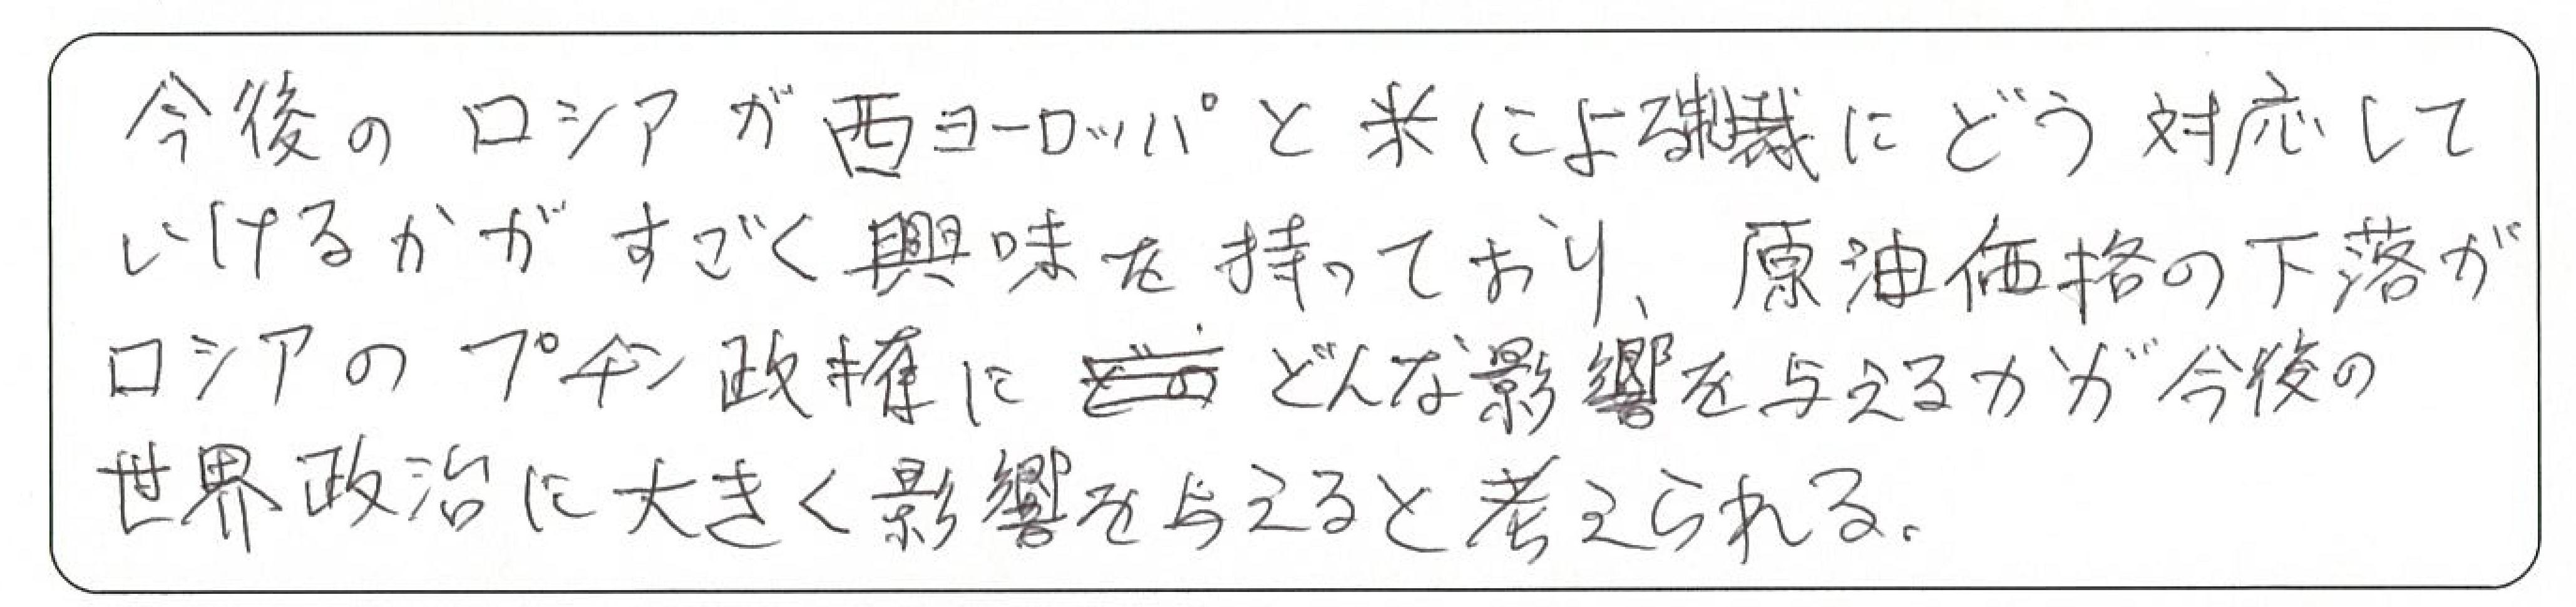 今後のロシアが西ヨーロッパと米による制裁にどう対応して
いけるかがすごく興味を持っており、原油価格の下落が
ロシアのプチン政権にどんな影響を与えるかが今後の
世界政治に大きく影響を与えると考えられる。